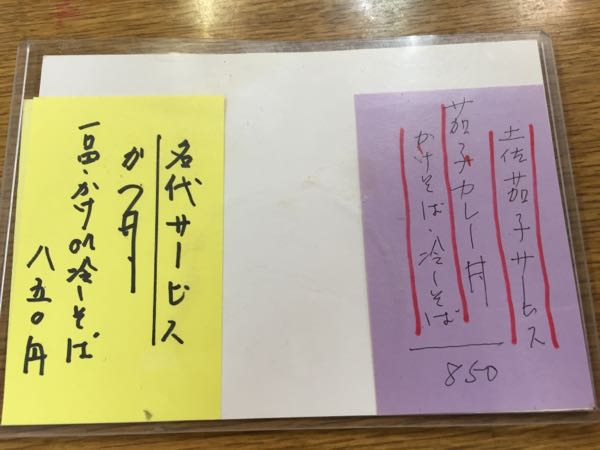 土佐茄子サービス
茄子カレー丼
かけそば・冷しそば
850
名代サービス
かつ丼
一品・かけor冷しそば
八五〇円